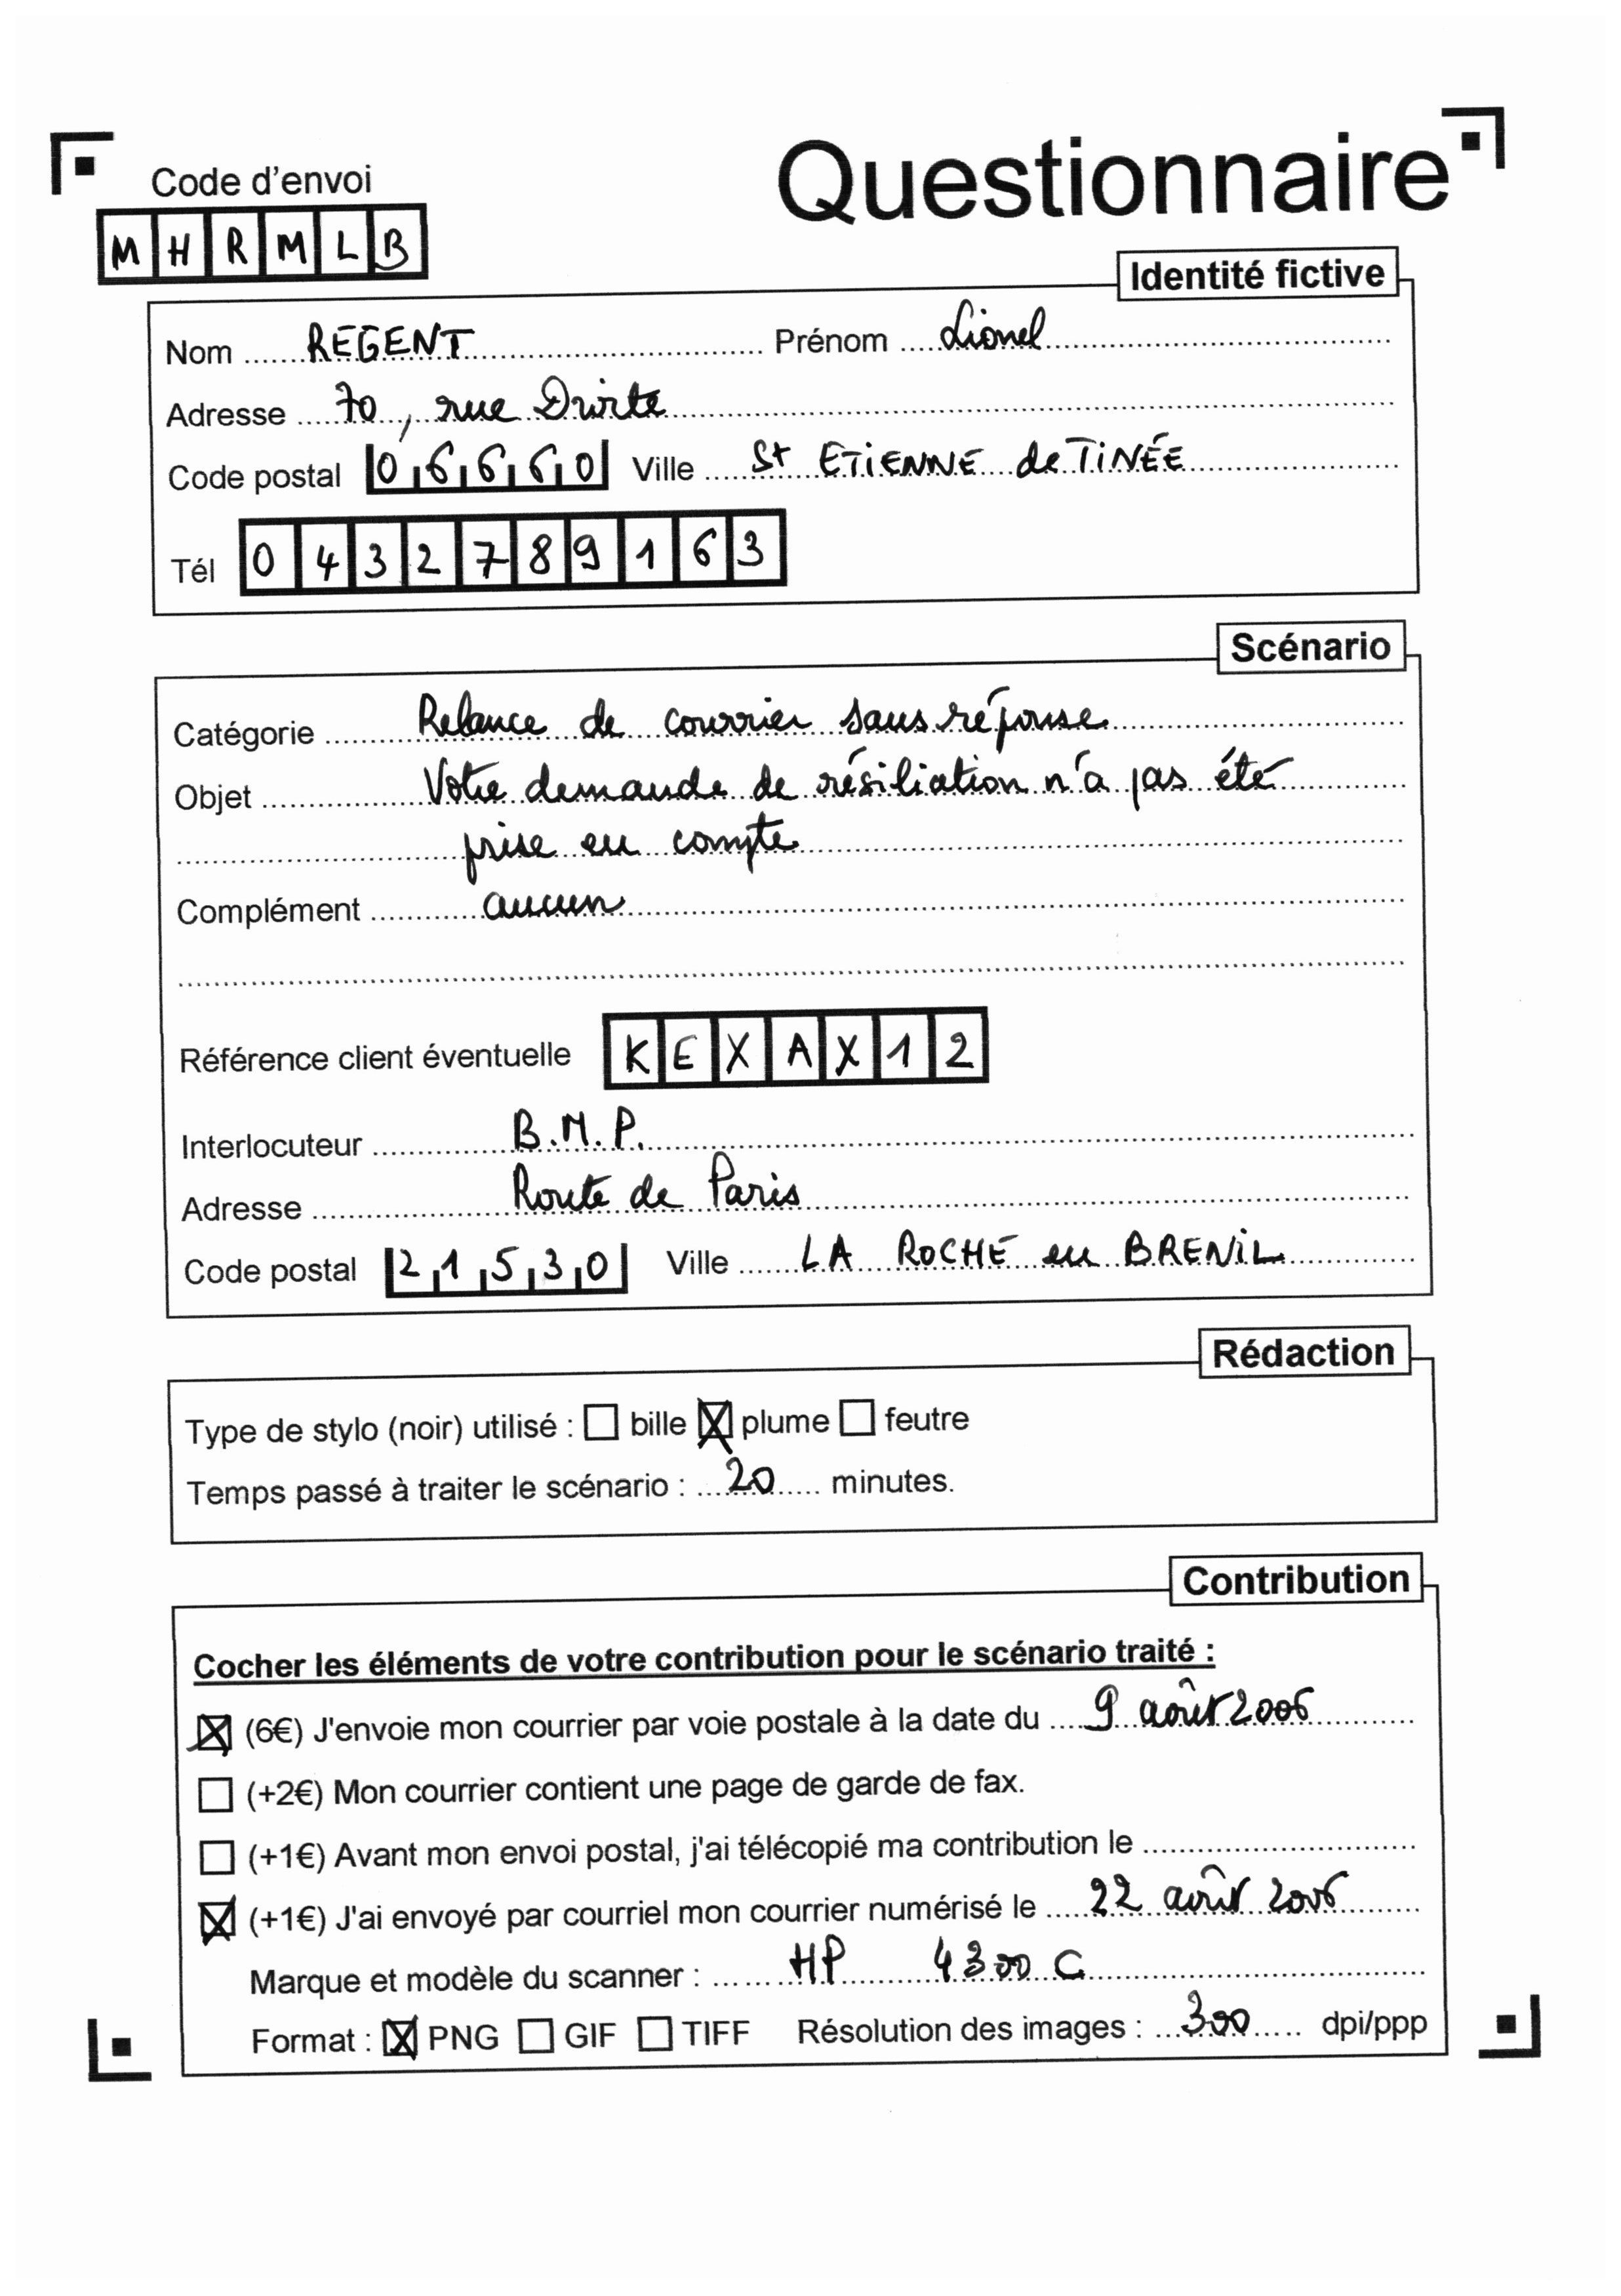 Questionnaire
Code d'envoi
MHRMLB
Identité fictive
Nom ...... REGENT ...... Prénom ...... Lionel ......
Adresse ...... 70, rue Droite ......
Code postal 06660 Ville ...... St ETIENNE de TINÉE ......
Tél 0432789163
Scénario
Catégorie ...... Relance de courrier sans réponse ......
Objet ...... Votre demande de résiliation n'a pas été
...... prise en compte ......
Complément ...... aucun ......
Référence client éventuelle KEXAX12
Interlocuteur ...... B.M.P. ......
Adresse ...... Route de Paris ......
Code postal 21530 Ville ...... LA ROCHE en BRENIL ......
Rédaction
Type de stylo (noir) utilisé : ☐ bille ☒ plume ☐ feutre
Temps passé à traiter le scénario : ... 20 ... minutes.
Contribution
Cocher les éléments de votre contribution pour le scénario traité :
☒ (6€) J'envoie mon courrier par voie postale à la date du ... 9 août 2006 ......
☐ (+2€) Mon courrier contient une page de garde de fax.
☐ (+1€) Avant mon envoi postal, j'ai télécopié ma contribution le ......
☒ (+1€) J'ai envoyé par courriel mon courrier numérisé le ... 22 août 2006 ......
Marque et modèle du scanner : ...... HP 4300 C ......
Format : ☒ PNG ☐ GIF ☐ TIFF Résolution des images : ... 300 ... dpi/ppp